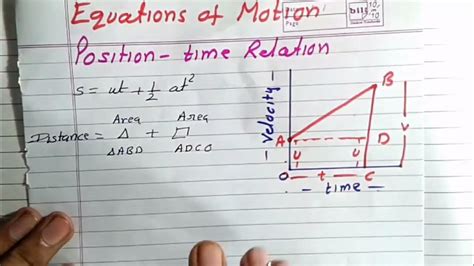 Equations of Motion
Position - time Relation
s = ut + 1/2 at²
Area Area
Distance = △ + □
△ABD ADCO
Velocity
A
B
D
u u
v
O t C
time